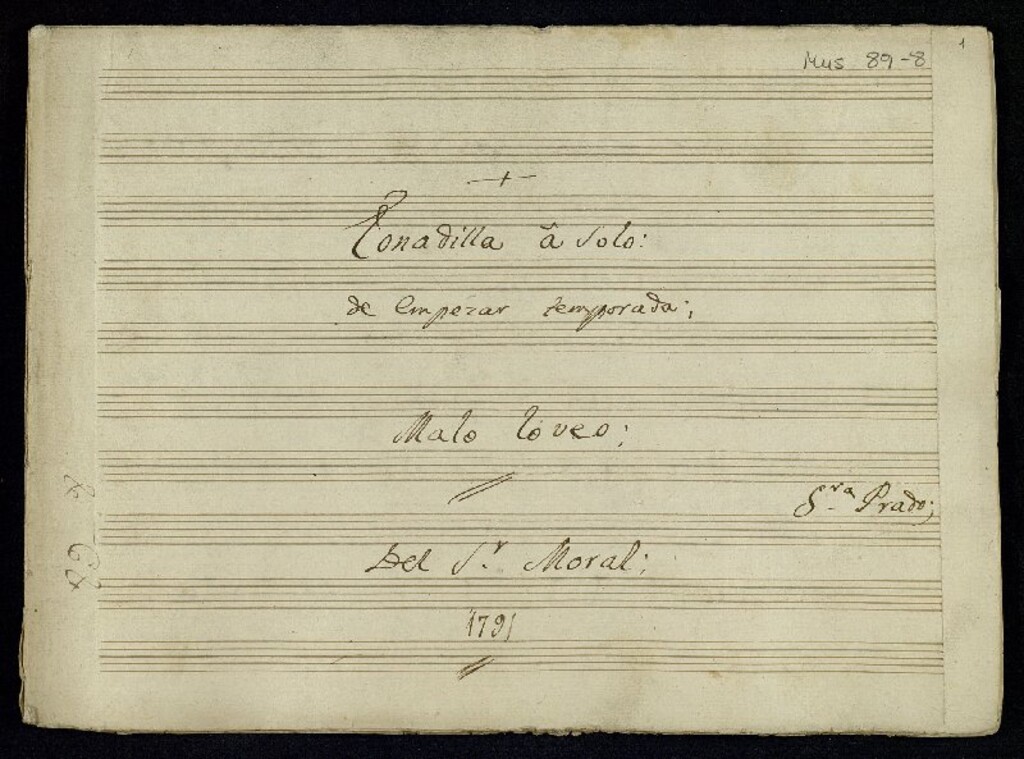 1
Mus 89-8
Tonadilla â Solo:
de empezar temporada;
Malo lo veo;
S.ra Prado;
Del S.r Moral;
1791